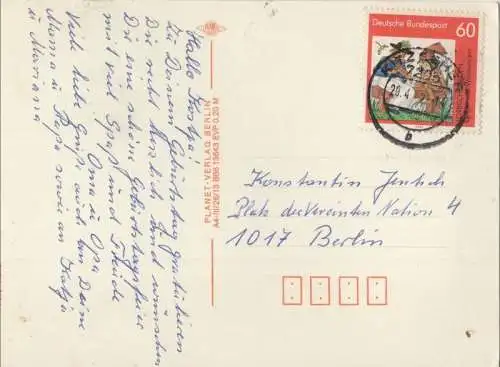 Hallo Kostja!
Zu Deinem Geburtstag gratulieren
Dir recht herzlich und wünschen
Dir eine schöne Geburtstagsfeier
mit viel Spaß und Freude
Oma u Opa
Viele liebe Grüße auch an Deine
Mama u Papa sowie an Katja
u Mariana
PLANET-VERLAG BERLIN
A4-III/26/13 B68 13643 EVP 0.20 M
Deutsche Bundespost
60
b
Konstantin Jentsch
Platz der Vereinten Nation 4
1017 Berlin